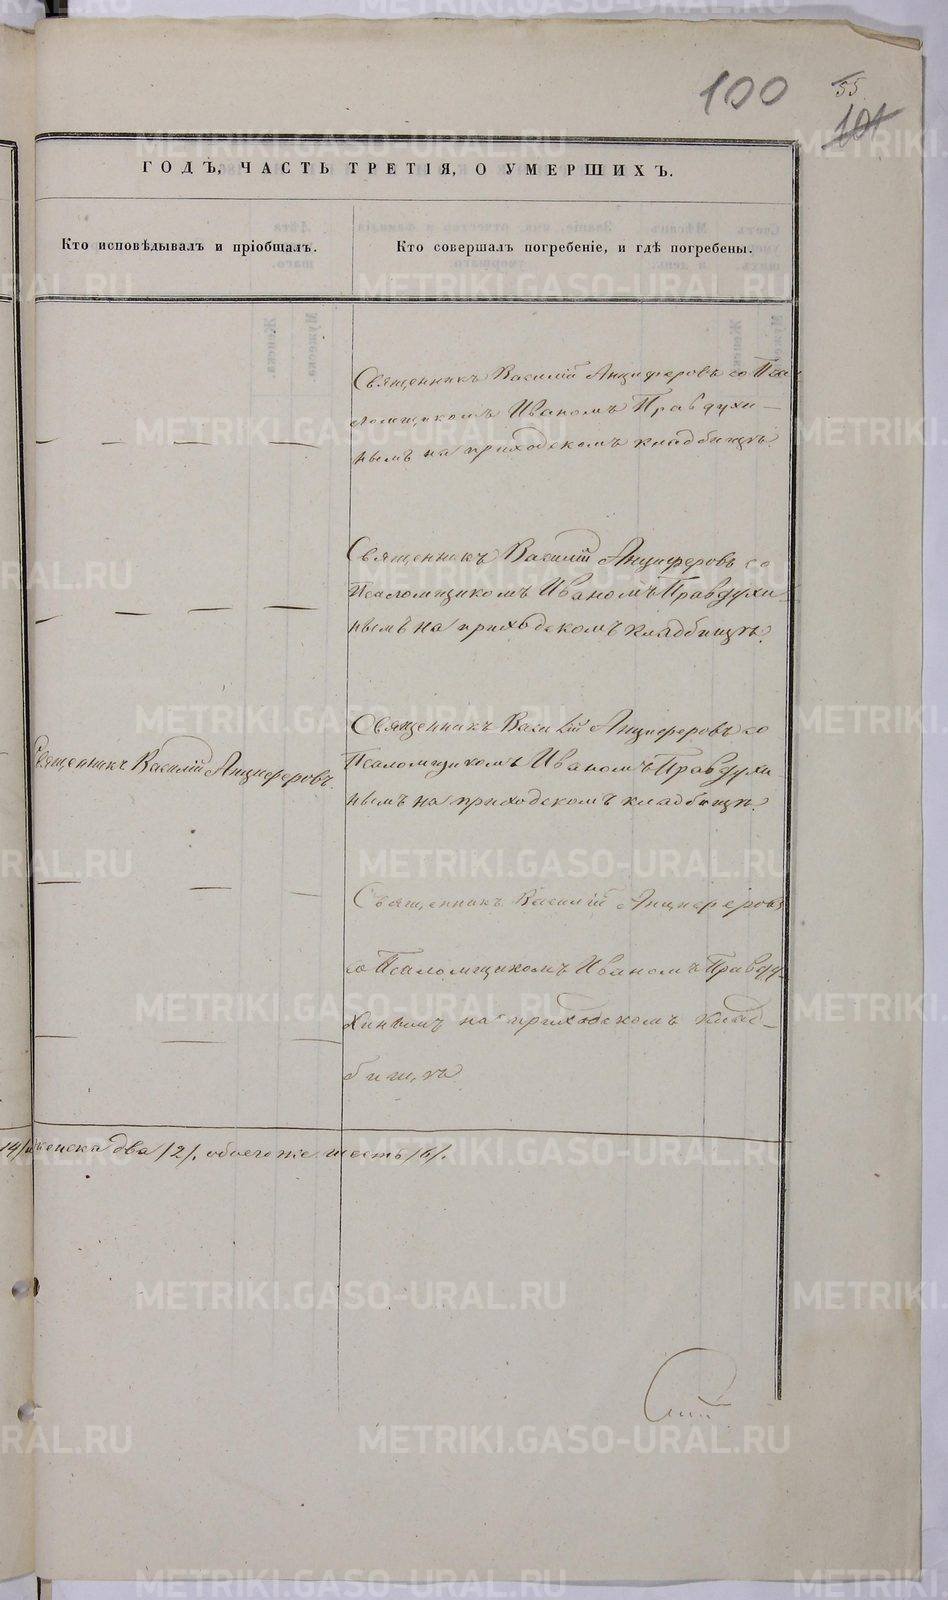 100
55
101
ГОДЪ, ЧАСТЬ ТРЕТІЯ, О УМЕРШИХЪ.
Кто исповѣдывалъ и пріобщалъ.
Кто совершалъ погребеніе, и гдѣ погребены.
Священникъ Василій Анциферовъ со Пса-
ломщикомъ Иваномъ Правдухи-
нымъ на приходскомъ кладбищѣ.
Священникъ Василій Анциферовъ со
Псаломщикомъ Иваномъ Правдухи-
нымъ на приходскомъ кладбищѣ.
Священникъ Василій Анциферовъ.
Священникъ Василій Анциферовъ со
Псаломщикомъ Иваномъ Правдухи-
нымъ на приходскомъ кладбищѣ.
Священникъ Василій Анциферовъ
со Псаломщикомъ Иваномъ Правду-
хинымъ на приходскомъ клад-
бищѣ
/4/ женска два /2/. обоего же шесть /6/.
METRIKI.GASO-URAL.RU